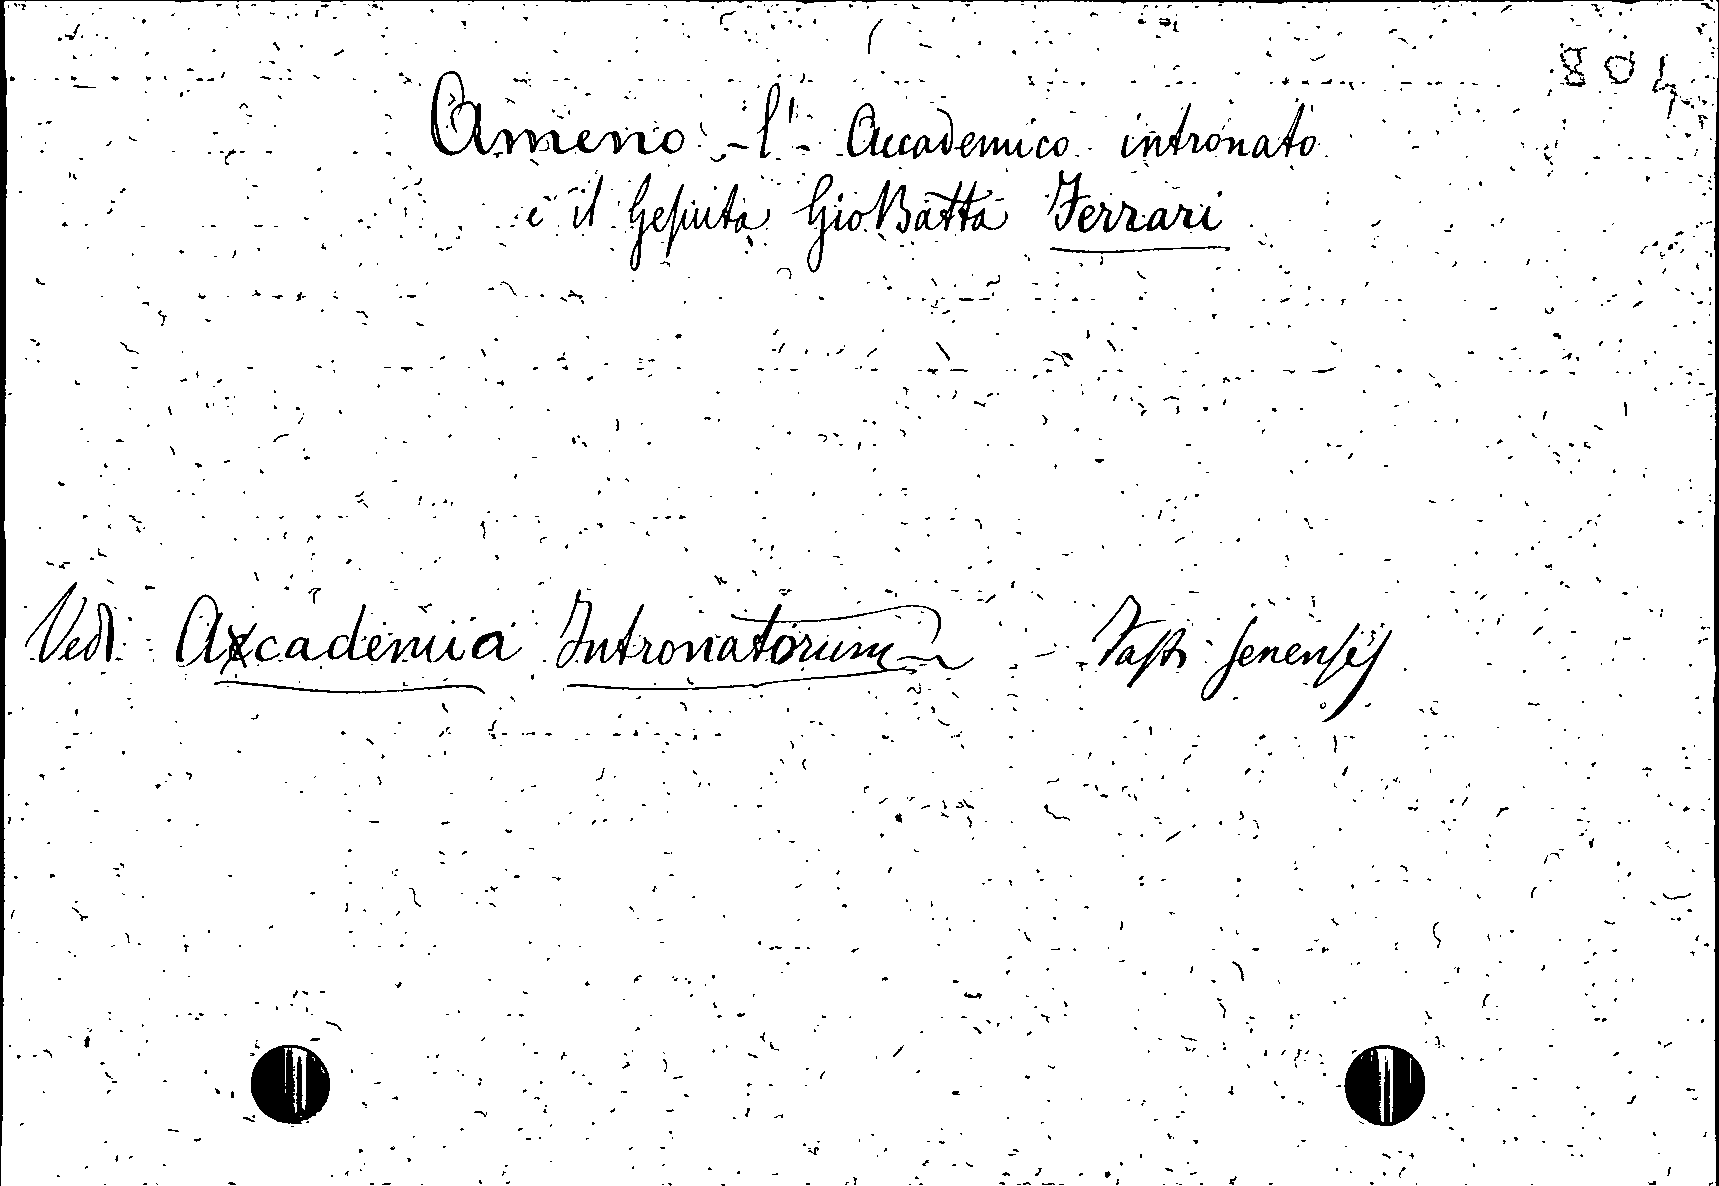 804
Ameno - l'- Accademico intronato
è il Gesuita GioBatta Ferrari
Vedi Accademia Intronatorum - Fasti senenses